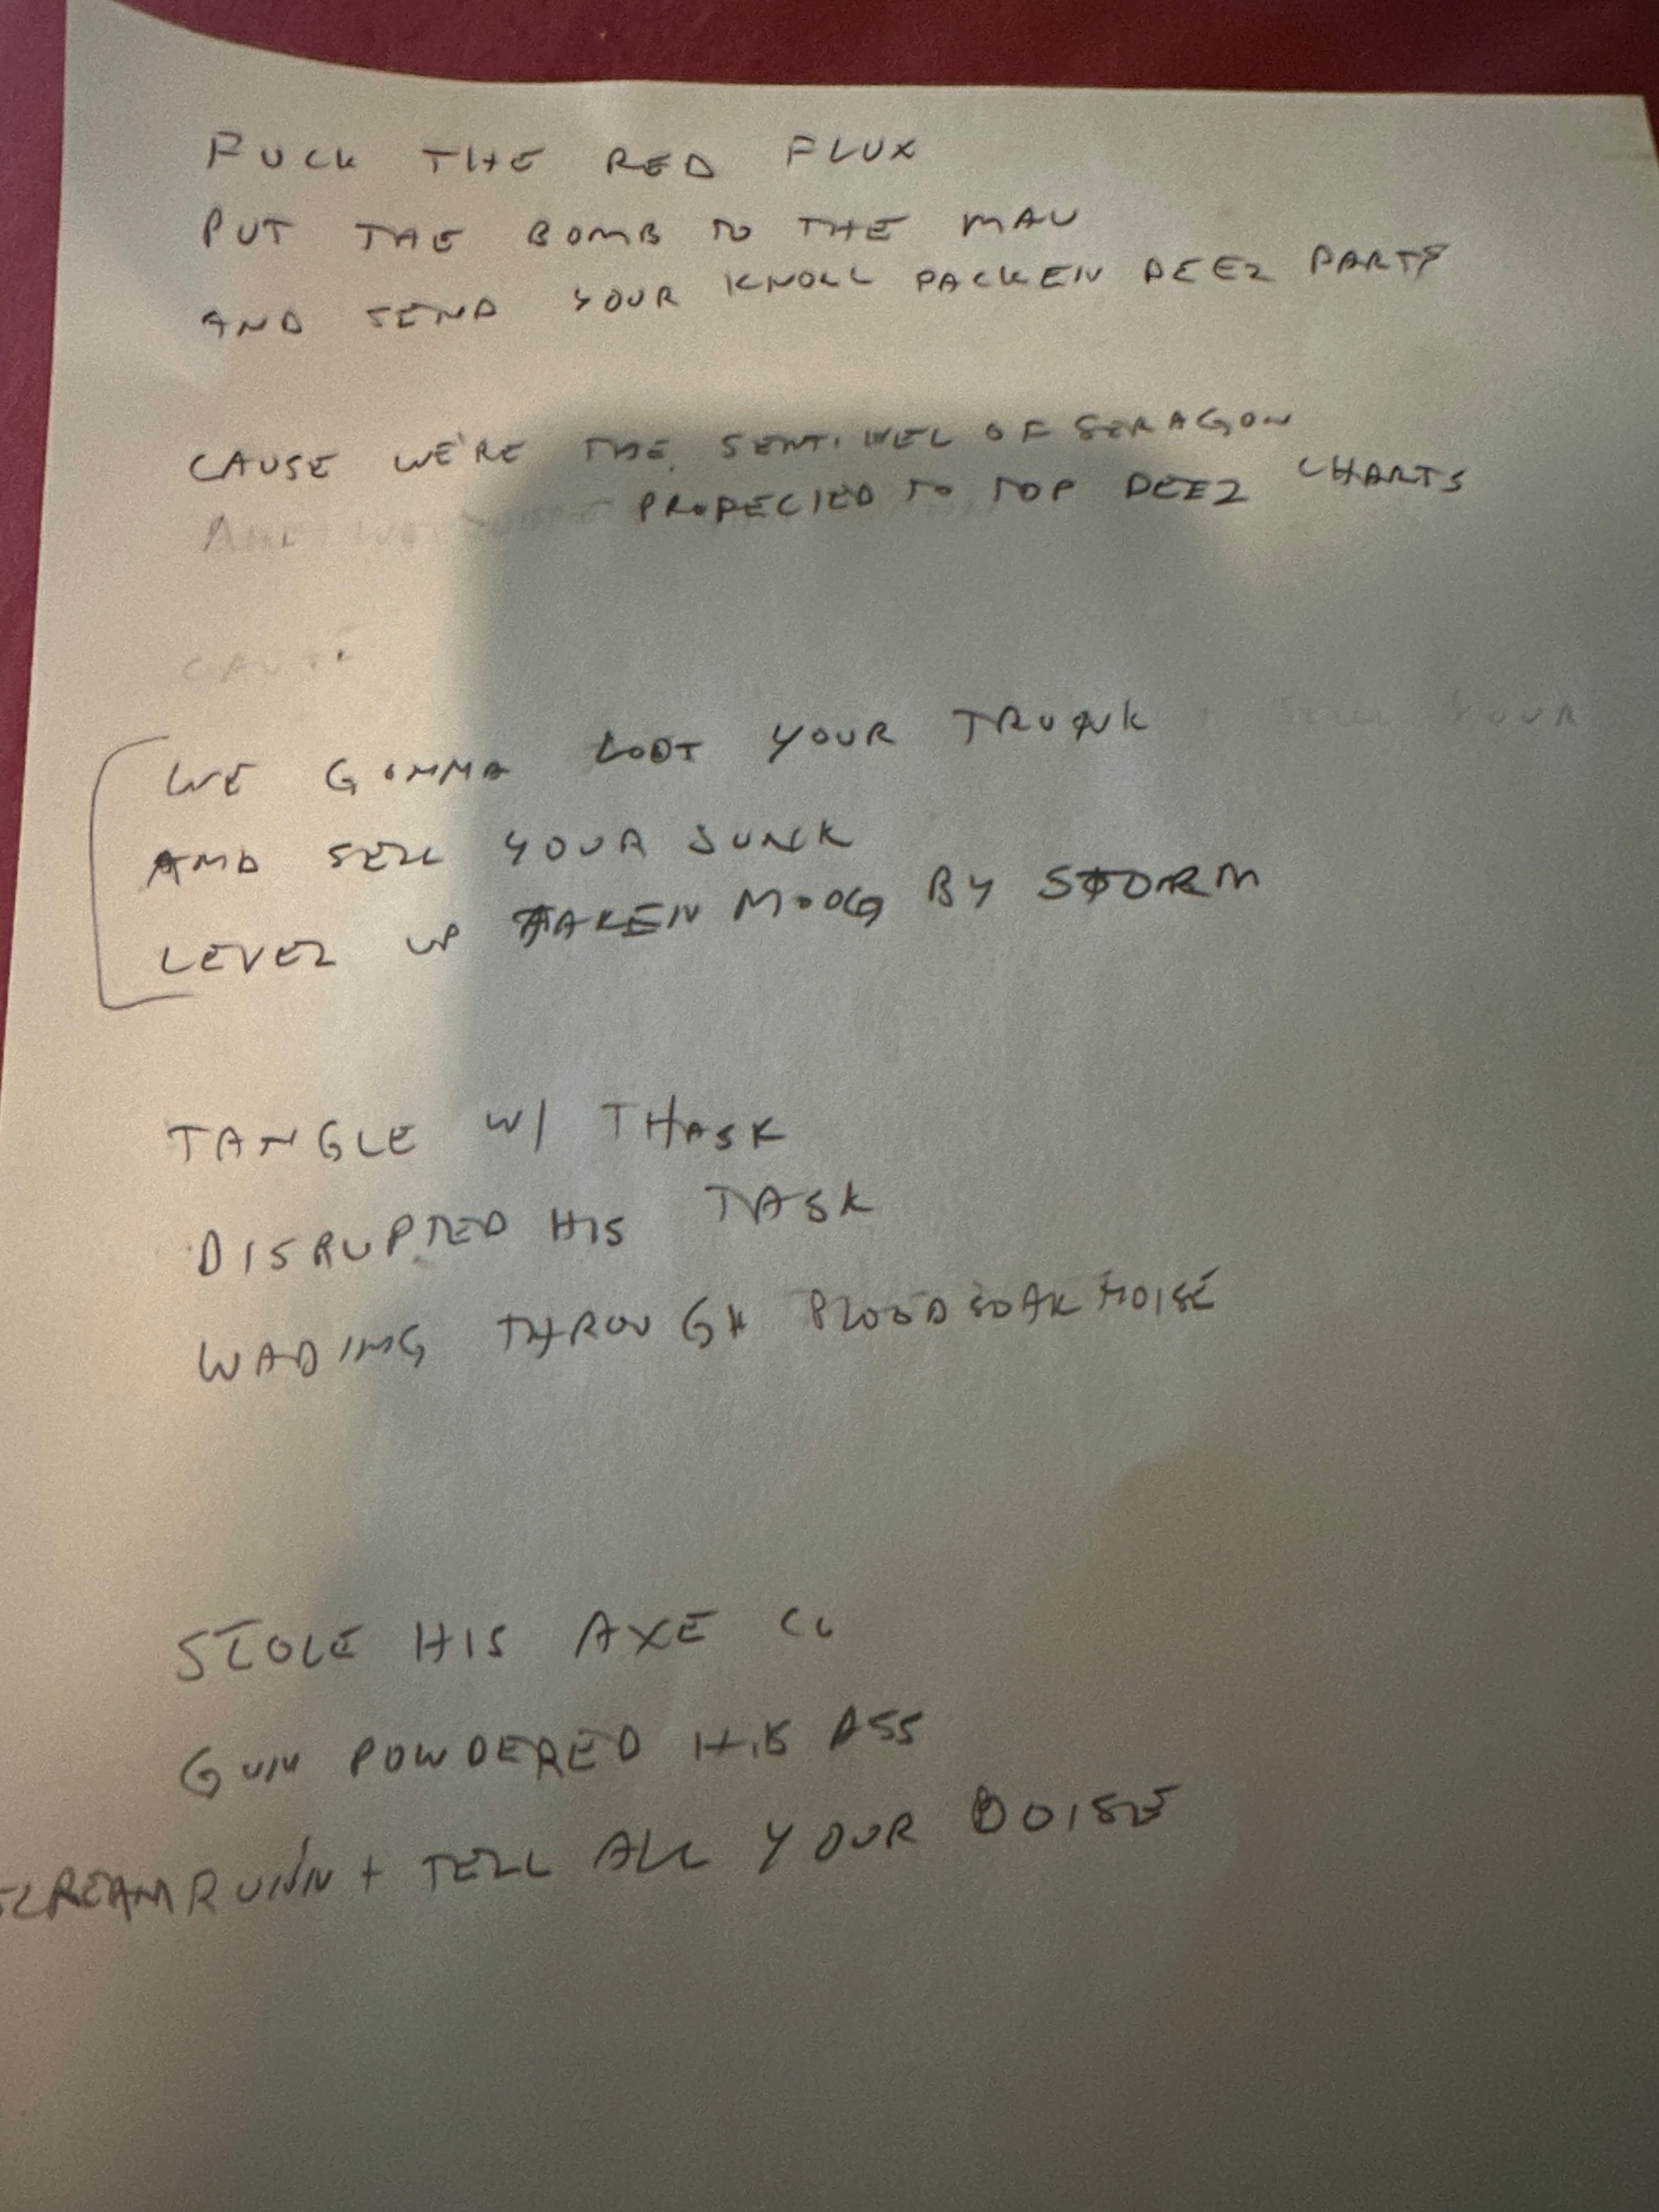 FUCK THE RED FLUX
PUT THE BOMB TO THE MAU
AND SEND YOUR KNOLL PACKEN DEEZ PARTS
CAUSE WE'RE THE SENTINEL OF SERAGON
PROPECIED TO TOP DEEZ CHARTS
CAUSE
WE GONNA LOOT YOUR TRUNK SELL YOUR
AND SELL YOUR JUNK
LEVEL UP TAKEN MOOG BY STORM
TANGLE W/ THASK
DISRUPTED HIS TASK
WADING THROUGH BLOODSOAK NOISE
STOLE HIS AXE
GUN POWDERED HIS ASS
SCREAM RUNN + TELL ALL YOUR BOISE